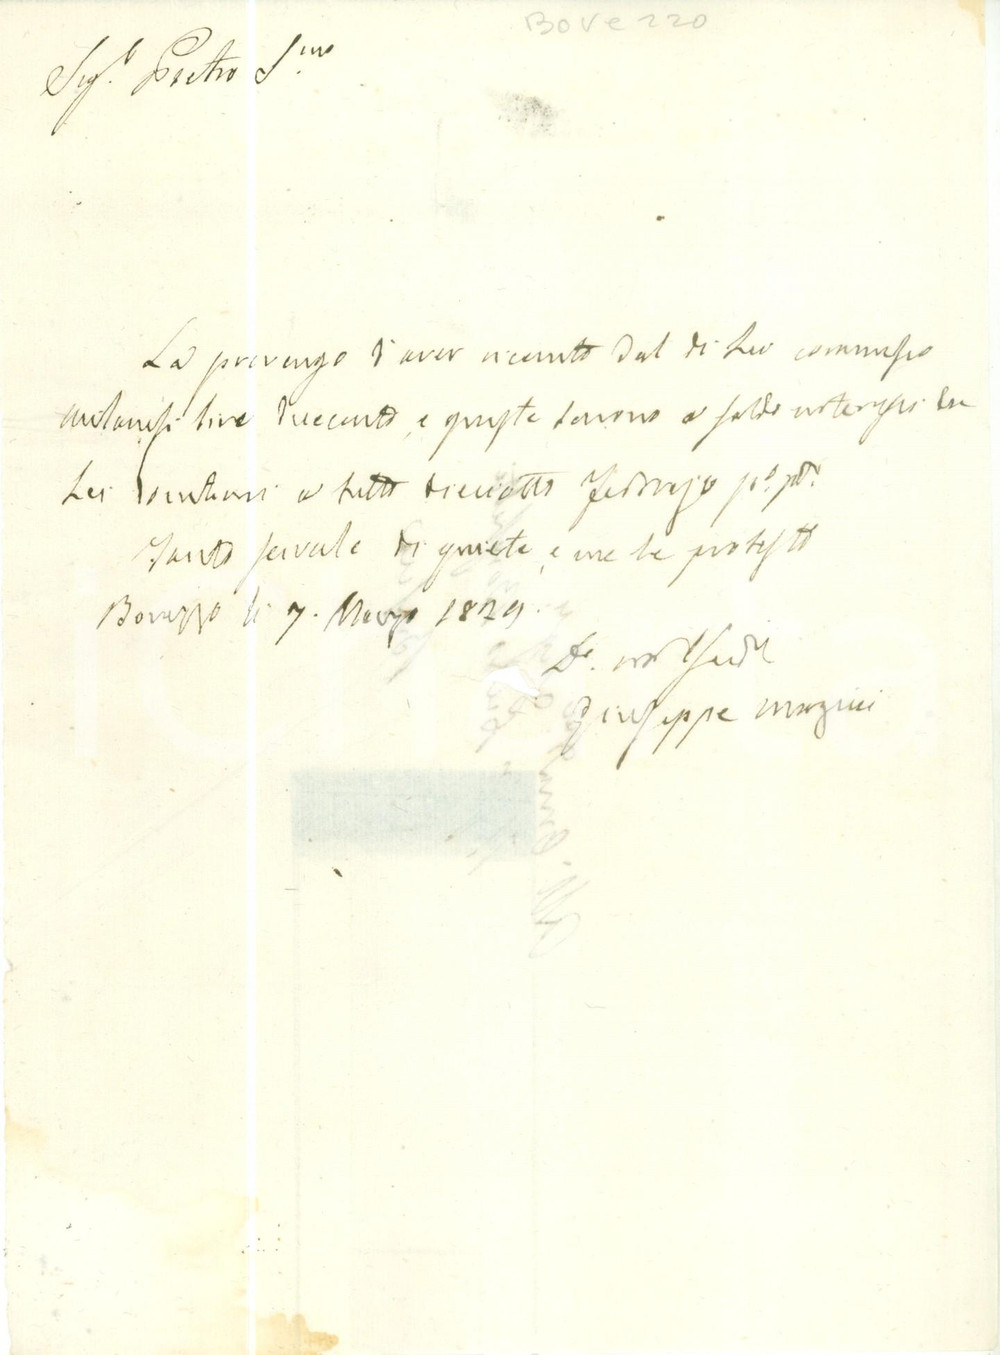 Bovezzo
Sig.r Pietro S.mo
La prevengo d'aver ricevuto dal di Lei commesso
milanesi lire duecento, e queste sono a saldo interessi da
Lei a tutto dieciotto Febbrajo p.o p.o
Tanto servale di quiete, e me le protesto
Bovezzo li 7. Marzo 1829.
Giuseppe